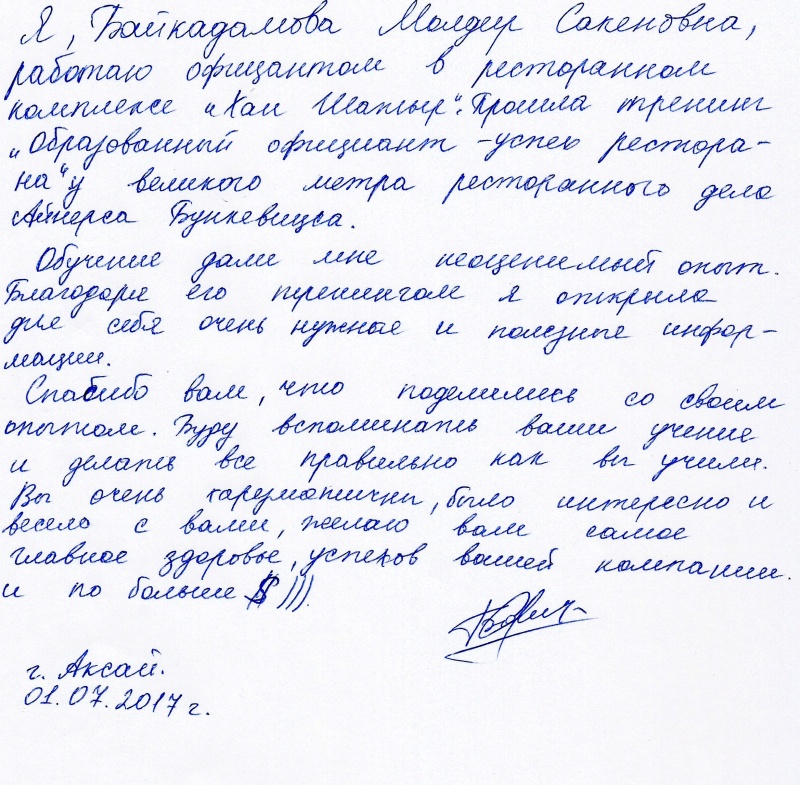 Я, Байкадамова Молдир Сакеновна,
работаю официантом в ресторанном
комплексе "Хан Шатыр". Прошла тренинг
"Образованный официант - успех рестора-
на" у великого метра ресторанного дела
Айнарса Бункевицса.
Обучение дали мне неоценимый опыт.
Благодаря его тренингам я открыла
для себя очень нужные и полезные инфор-
мации.
Спасибо вам, что поделились со своим
опытом. Буду вспоминать ваши учение
и делать все правильно как вы учили.
Вы очень харезматичны, было интересно и
весело с вами, желаю вам самое
главное здоровье, успехов вашей компании.
и по больше $ ))).
г. Аксай.
01.07.2017 г.